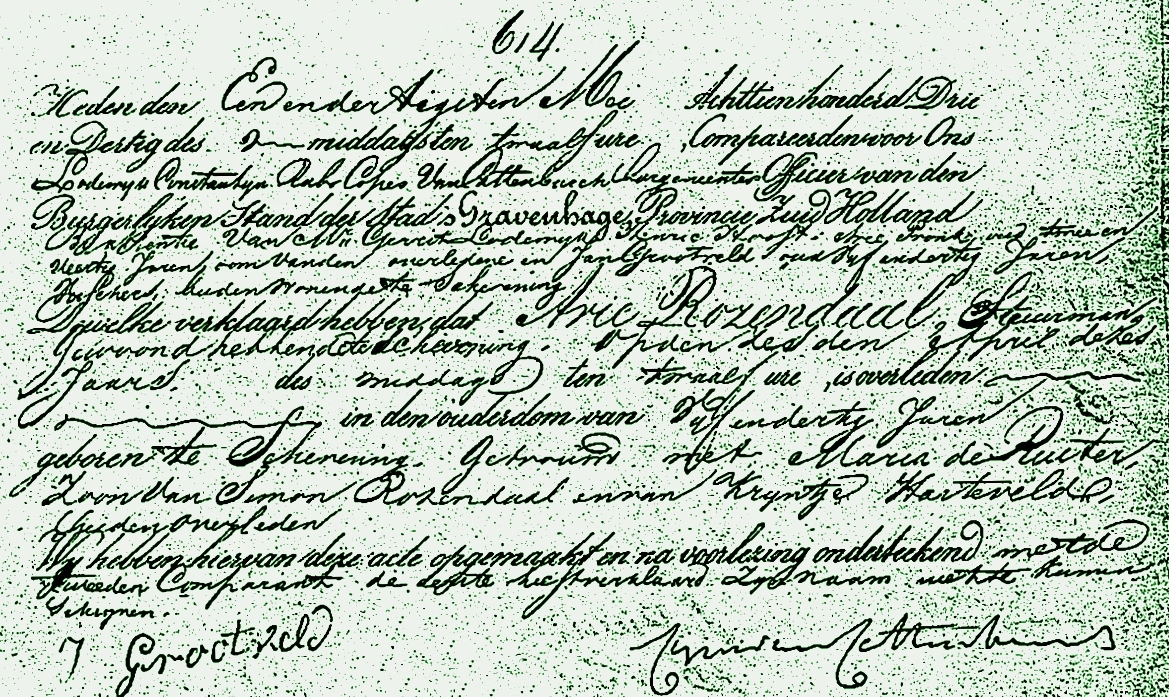 614.
Heden den Een en dertigsten Mei Achttienhonderd Drie
en Dertig des middags ten twaalf ure, Compareerden voor Ons
Lodewijk Constantijn Rabo Copes Van Cattenburch burgemeester Officier van den
Burgerlyken Stand der Stad s Gravenhage, Provincie Zuid Holland
absentie Van Gerrit Lodewijk Henric Hooft: Arie Pronk, oud drie en
Veertig Jaren, van den overledene en Jan Grootveld oud Vyf en dertig Jaren,
Visscher, beiden wonende te Schevening
Dewelke verklaard hebben, dat Arie Rozendaal, Stuurman,
Gewoond hebbende te Schevening. Op den zes den April dezes
Jaars. des middags ten twaalf ure, is overleden
in den ouderdom van Vyf en dertig Jaren
geboren te Schevening. Getrouwd met Maria de Ruiter,
Zoon Van Simon Rozendaal en van Kryntje Harteveld,
beiden overleden
Wy hebben hiervan deze acte opgemaakt en na voorlezing onderteekend met de
tweeden Comparant de eerste heeft verklaard Zyn naam niet te kunnen
Schryven.
J Grootveld